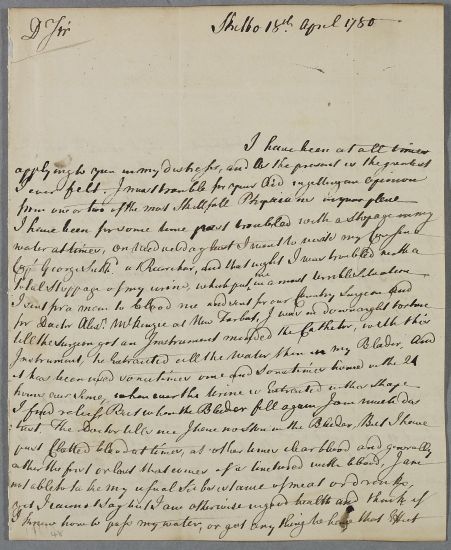 Dr Sir
Skibo 18th April 1780
I have been at all times
applying to you in my distress, and as the present is the greatest
I ever felt. I must trouble for your Aid in getting an opinion
from one or two of the most Skillfull Physicians in your place
I have been for some time past troubled with a stopage in my
water at times, on Wednesday last I went to visite my Cousin
Capt George Suthd at Rearchar, and that night I was troubled with a
total Stoppage of my urine, which put me in a most terrible Situation
I sent for a man to blood me and sent for our Country Surgeon and
for Doctor Alexr McKenzie at New Tarbat, I was in downright torture
till the Surgeon got an Instrument named the Catheter, with this
Instrument, he Extracted all the Water then in my Blader, And
it has been used sometimes once and sometimes twice in the 24
hours since, whenever the Urine is Extracted
I find relief But when the Blader fill again I am much dis
trest. The Doctor tells me I have no Ston in the Blader, But I have
past Clotted blood at times, at other times clear blood and Generally
either the first or last that comes off is tinctured with blood, I am
not able to take my usual Subsistance of meat or drink,
yet I cannot say but I am otherwise in good health and think if
I knew how to pass my water, or got any thing to have that Effect